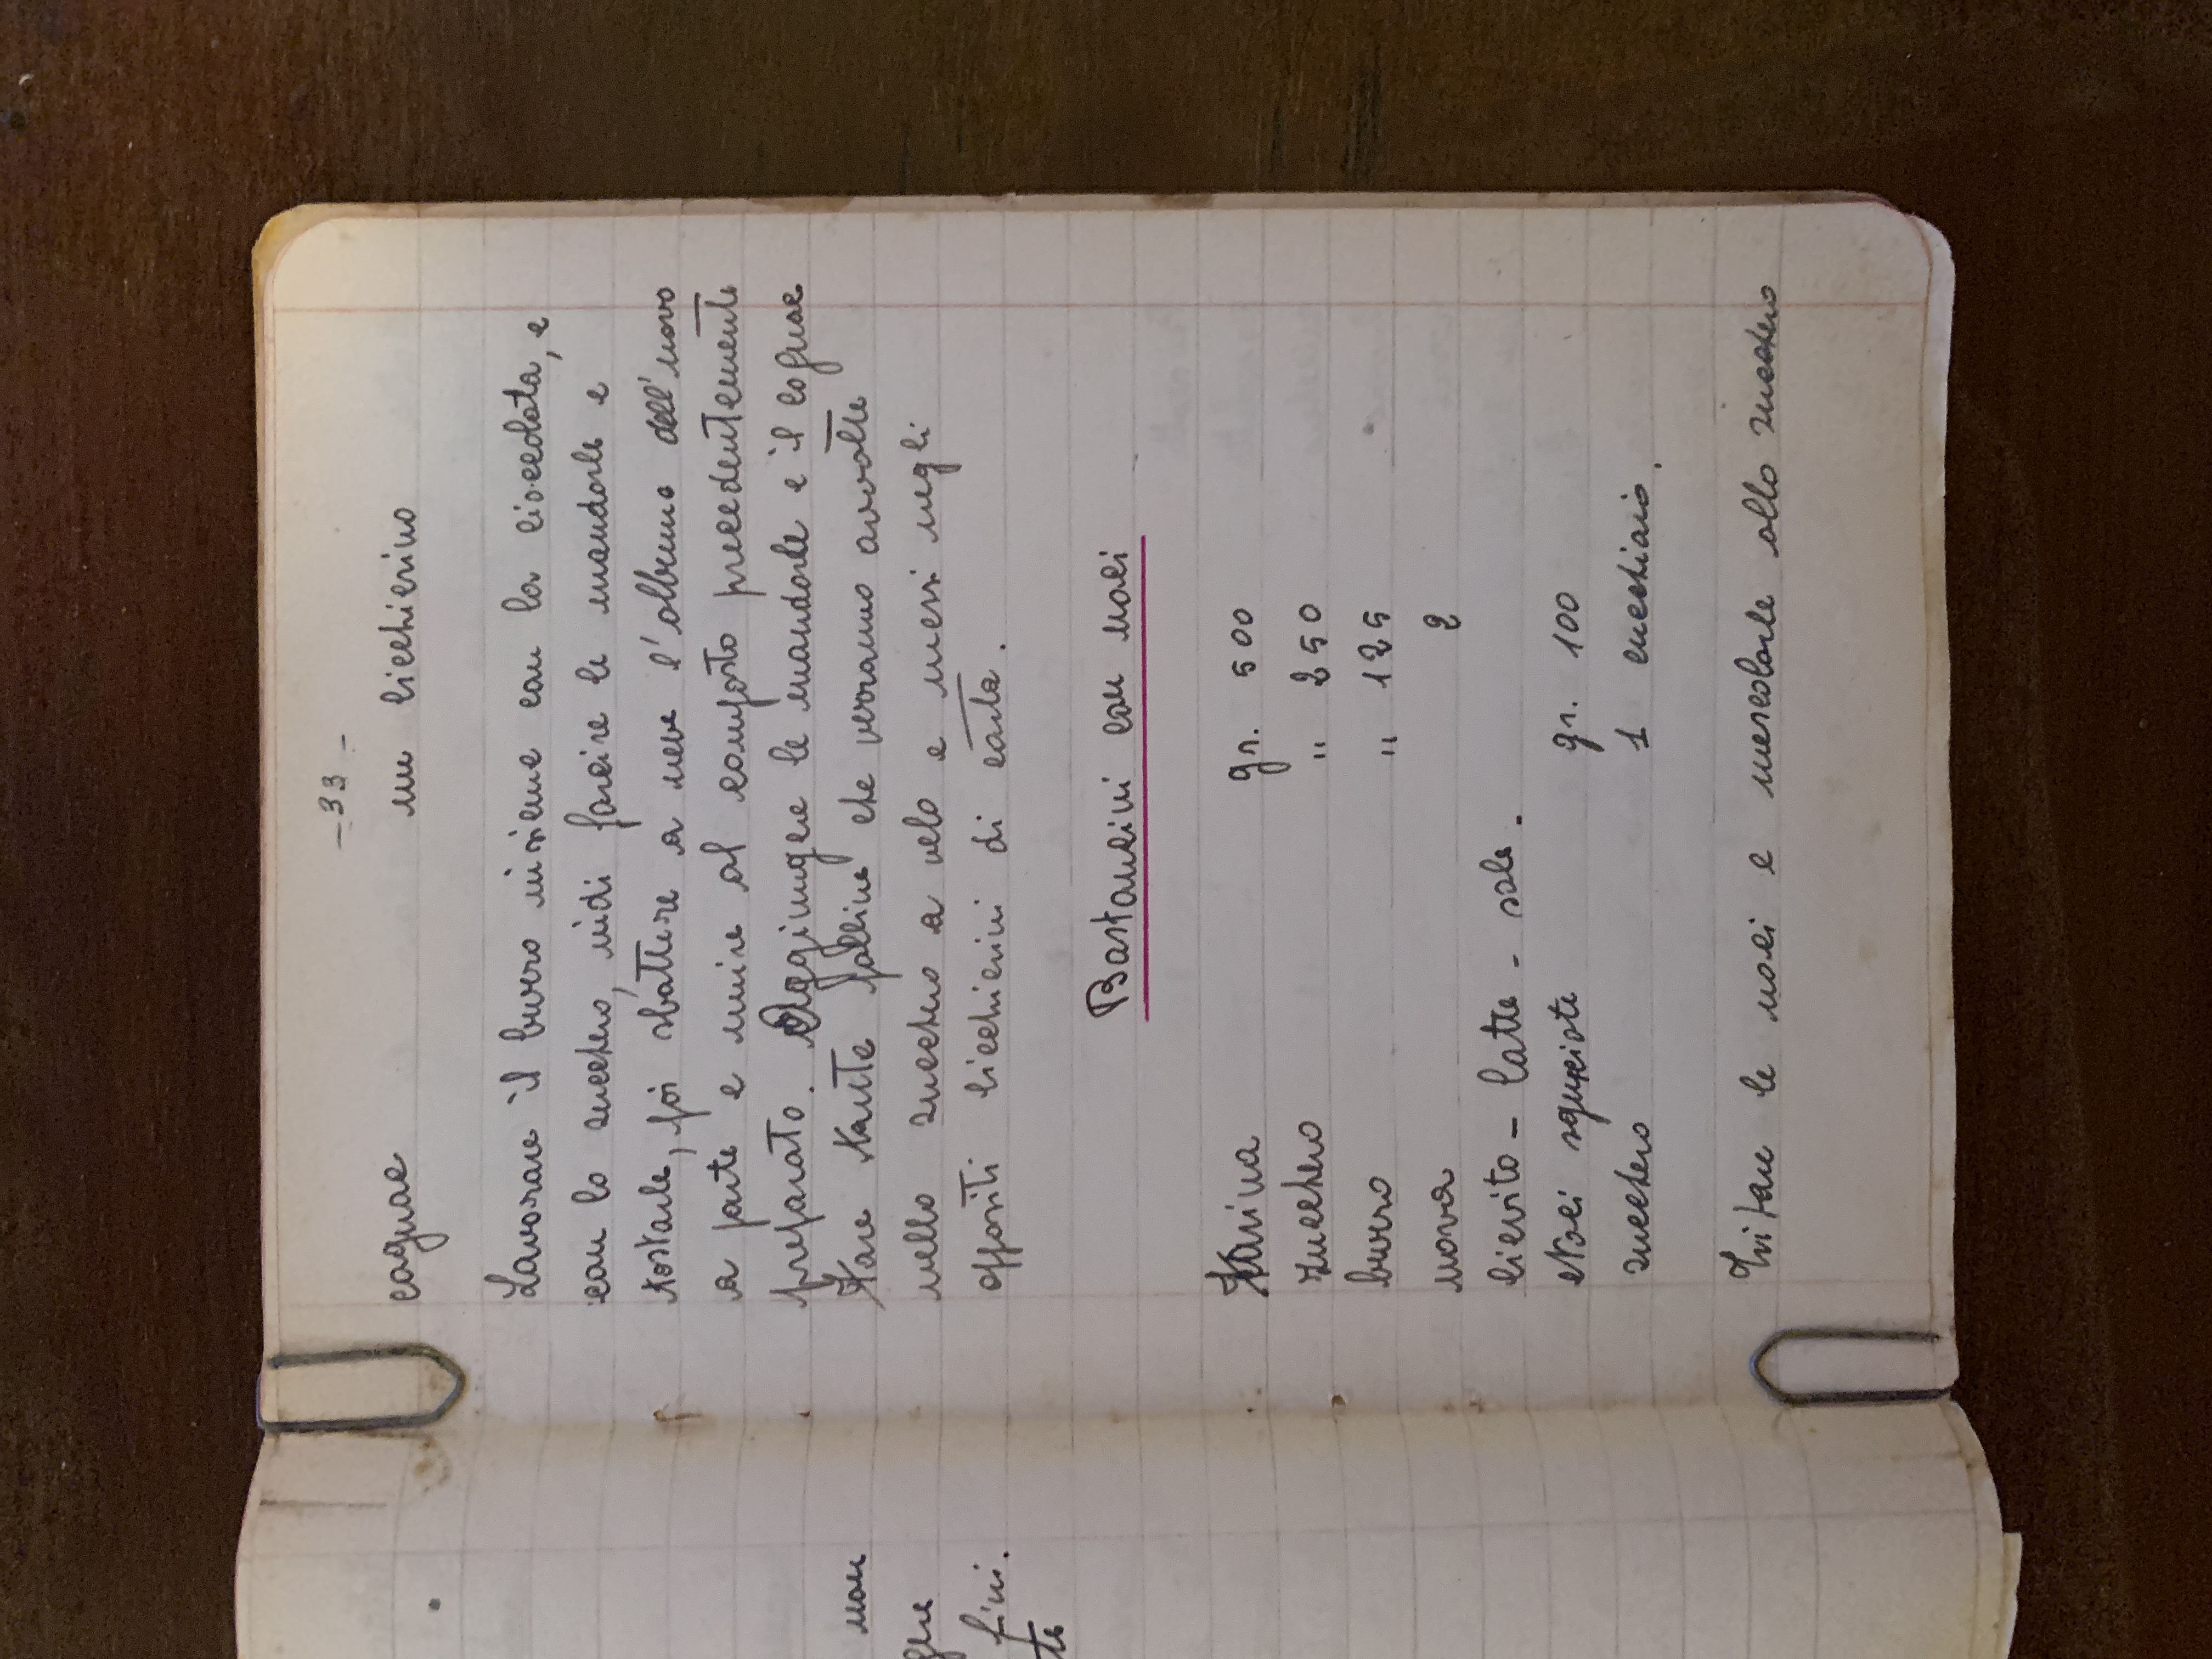 non
gere
fini.
te
- 33 -
cognac un bicchierino
Lavorare il burro insieme con la cioccolata, e
con lo zucchero, indi farcire le mandorle e
tostarle, poi sbattere a neve l'albume dell'uovo
a parte e unire al composto precedentemente
preparato. Aggiungere le mandorle e il cognac
Fare tante palline che verranno avvolte
nello zucchero a velo e messi negli
appositi bicchierini di carta.
Bastoncini con noci
Farina gr. 500
zucchero " 250
burro " 125
uova 2
lievito - latte - sale.
Noci sgusciate gr. 100
zucchero 1 cucchiaio.
Tritare le noci e mescolarle allo zucchero